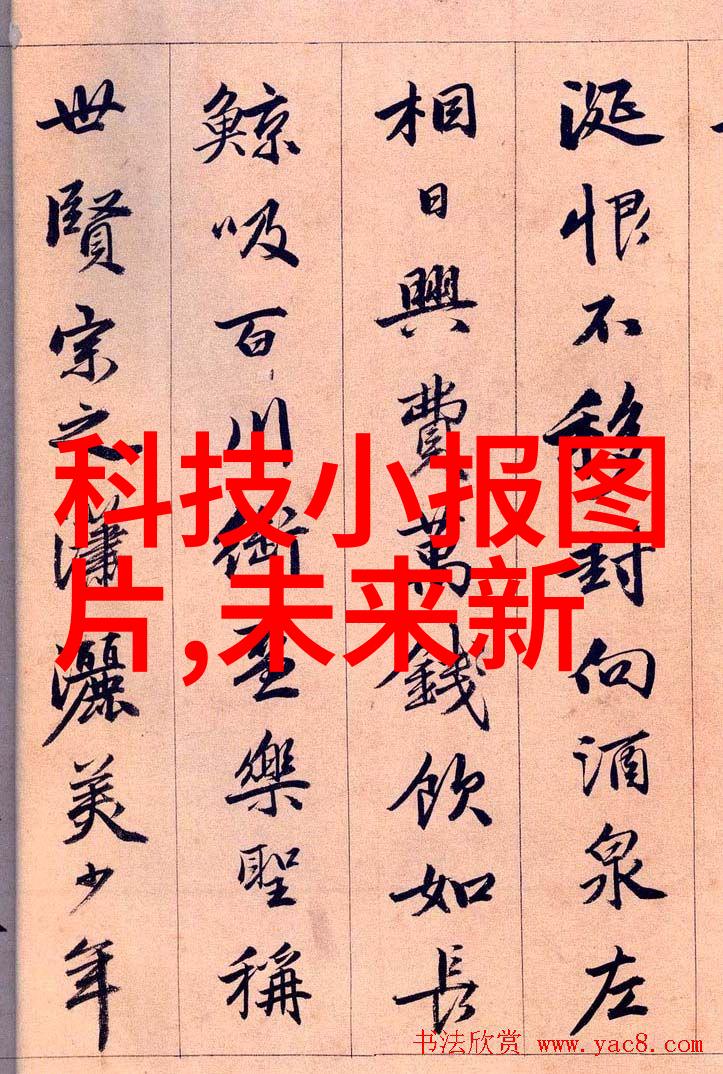 涎恨不移封向酒泉左
相日興費萬錢飲如長
鯨吸百川銜盃樂聖稱
世賢宗之瀟灑美少年
科技小报图
片,未来新
书法欣赏 www.yac8.com